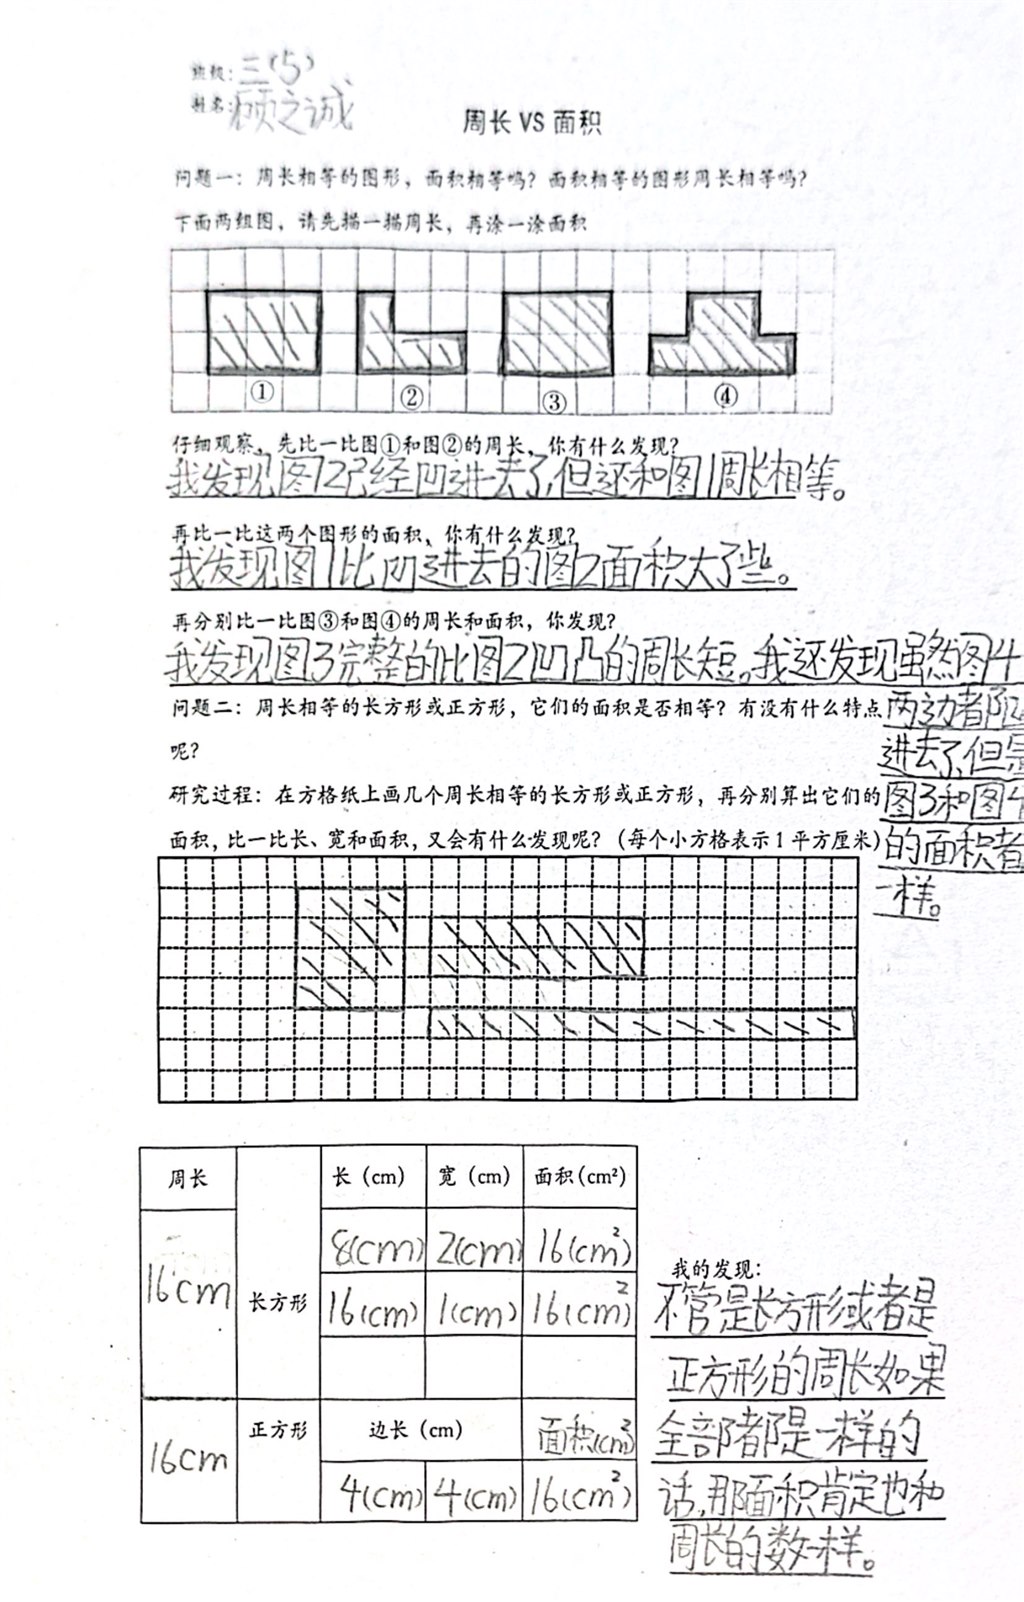 班级：三(5)
姓名：顾之诚
周长 VS 面积
问题一：周长相等的图形，面积相等吗？面积相等的图形周长相等吗？
下面两组图，请先描一描周长，再涂一涂面积
① ② ③ ④
仔细观察，先比一比图①和图②的周长，你有什么发现？
我发现图12已经凹进去了，但还和图1周长相等。
再比一比这两个图形的面积，你有什么发现？
我发现图1比凹进去的图2面积大了些。
再分别比一比图③和图④的周长和面积，你发现？
我发现图3完整的比图2凹凸的周长短。我还发现虽然图4
两边都凹
进去了，但是
图3和图4
的面积者
一样。
问题二：周长相等的长方形或正方形，它们的面积是否相等？有没有什么特点
呢？
研究过程：在方格纸上画几个周长相等的长方形或正方形，再分别算出它们的
面积，比一比长、宽和面积，又会有什么发现呢？（每个小方格表示1平方厘米）
周长 长（cm） 宽（cm） 面积(cm²)
16cm 长方形 8(cm) 2(cm) 16(cm²)
16(cm) 1(cm) 16(cm²)
16cm 正方形 边长（cm） 面积(cm²)
4(cm) 4(cm) 16(cm²)
我的发现：
不管是长方形或者是
正方形的周长如果
全部都是一样的
话，那面积肯定也和
周长的数一样。